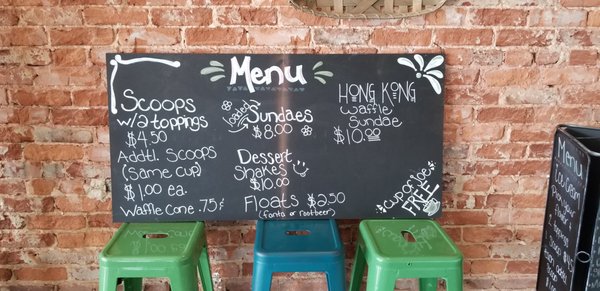 Menu
Scoops
w/2 toppings
$4.50
Addtl. Scoops
(Same cup)
$1.00 ea.
Waffle Cone .75¢
Loaded
Sundaes
$8.00
Dessert
Shakes
$10.00
Floats $9.50
(fanta or rootbeer)
HONG KONG
Waffle
Sundae
$10.00
cupcake
FREE
Menu
Ice Cream